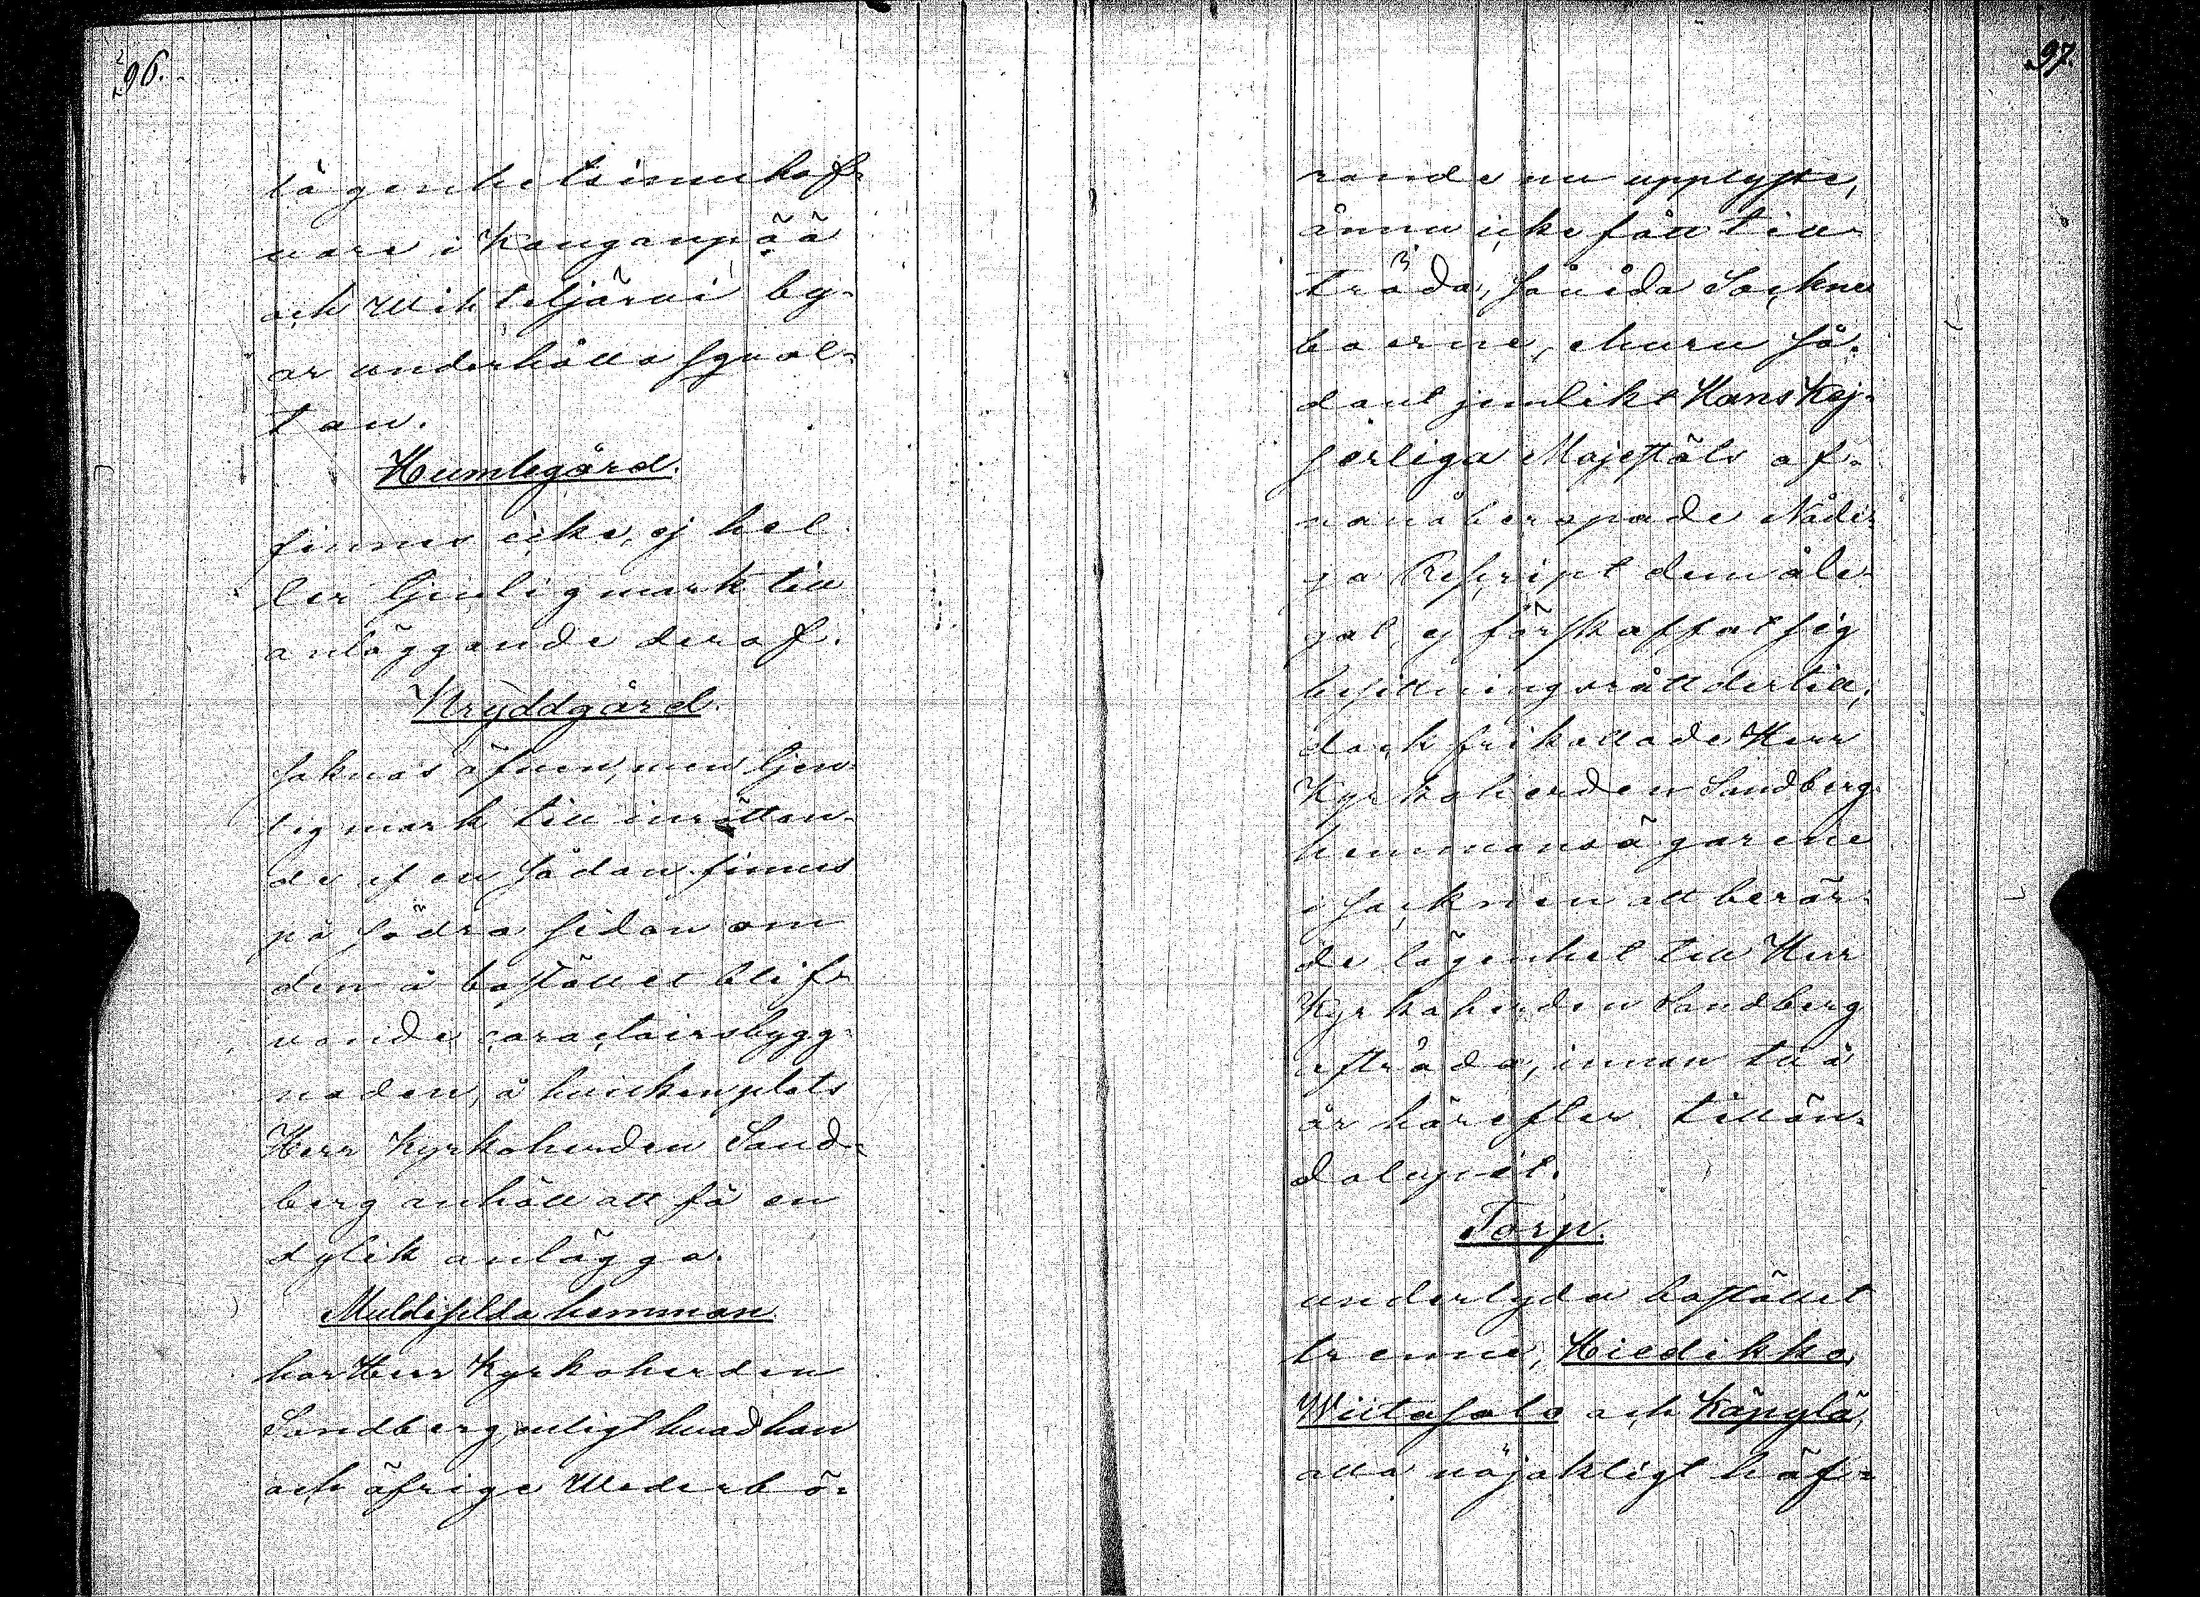 96.
lägenhetsinnehaf-
vare i Kanganpää
och Wihteljärvi by-
ar underhålla sqval-
tan.
Humlegård.
finnes icke, ej hel
ler tjenlig mark till
anläggande deraf.
Kryddgård.
saknas äfven, men tjen-
lig mark till inrättan-
de af en sådan finnes
på södra sidan om
den å bostället blif-
vande caractairsbygg-
naden, å hvilken plats
Herr Kyrkoherden Sand-
berg anhöll att få en
dylik anlägga.
Muldisflda hemman
har Herr Kyrkoherden
Sandberg, enligt hvad han
och öfrige Wederbö-
97.
rande nu upplyste,
ännu icke fått till-
träda, såvida Sockne
boerne, ehuru så-
dant jemlikt Hans Kej-
serliga Majestäts of-
vanåberopade Nådi-
ga Rescript dem åle-
gat, ej förskaffat sig
besittningsrätt dertill;
dock frikallade Herr
Kyrkoherden Sandberg
hemmansägarene
i socknen att berör-
de lägenhet till Herr
Kyrkoherden Sandberg
afträda, innan två
år härefter tillän-
dalupit.
Torp.
underlyda bostället
trenne, Hiedikko,
Wiitasalo och Käpylä,
alla nöjaktigt häf-